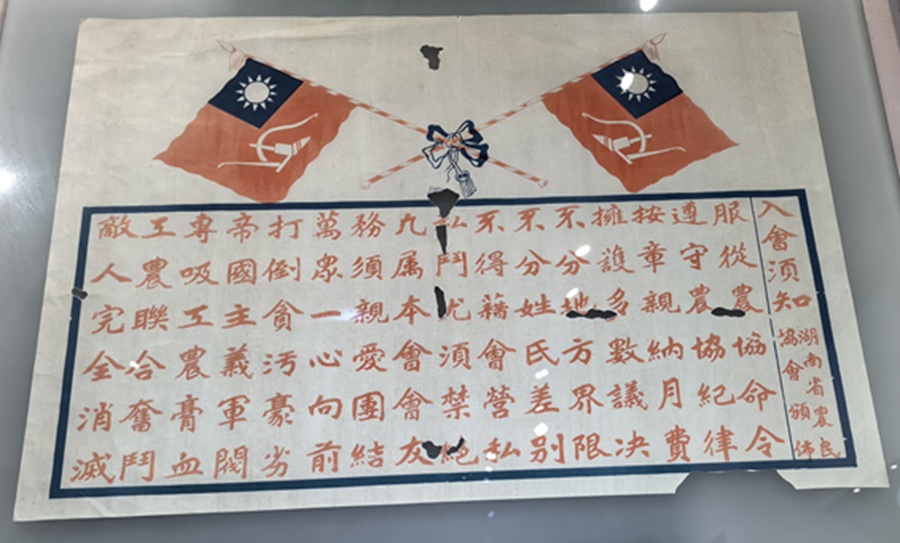 入會須知
湖南省農民
協會頒佈
服從農協命令
遵守農協紀律
按章親納月費
擁護多數議决
不分地方界限
不分姓氏差别
不得藉會營私
私鬥尤須禁絕
凡属本會會友
務須親愛團結
萬眾一心向前
打倒貪污豪劣
帝國主義軍閥
專吸工農膏血
工農聯合奮鬥
敵人完全消滅